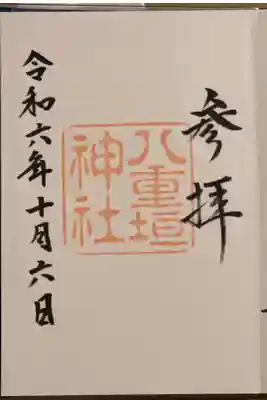 参拝
八重垣
神社
令和六年十月六日